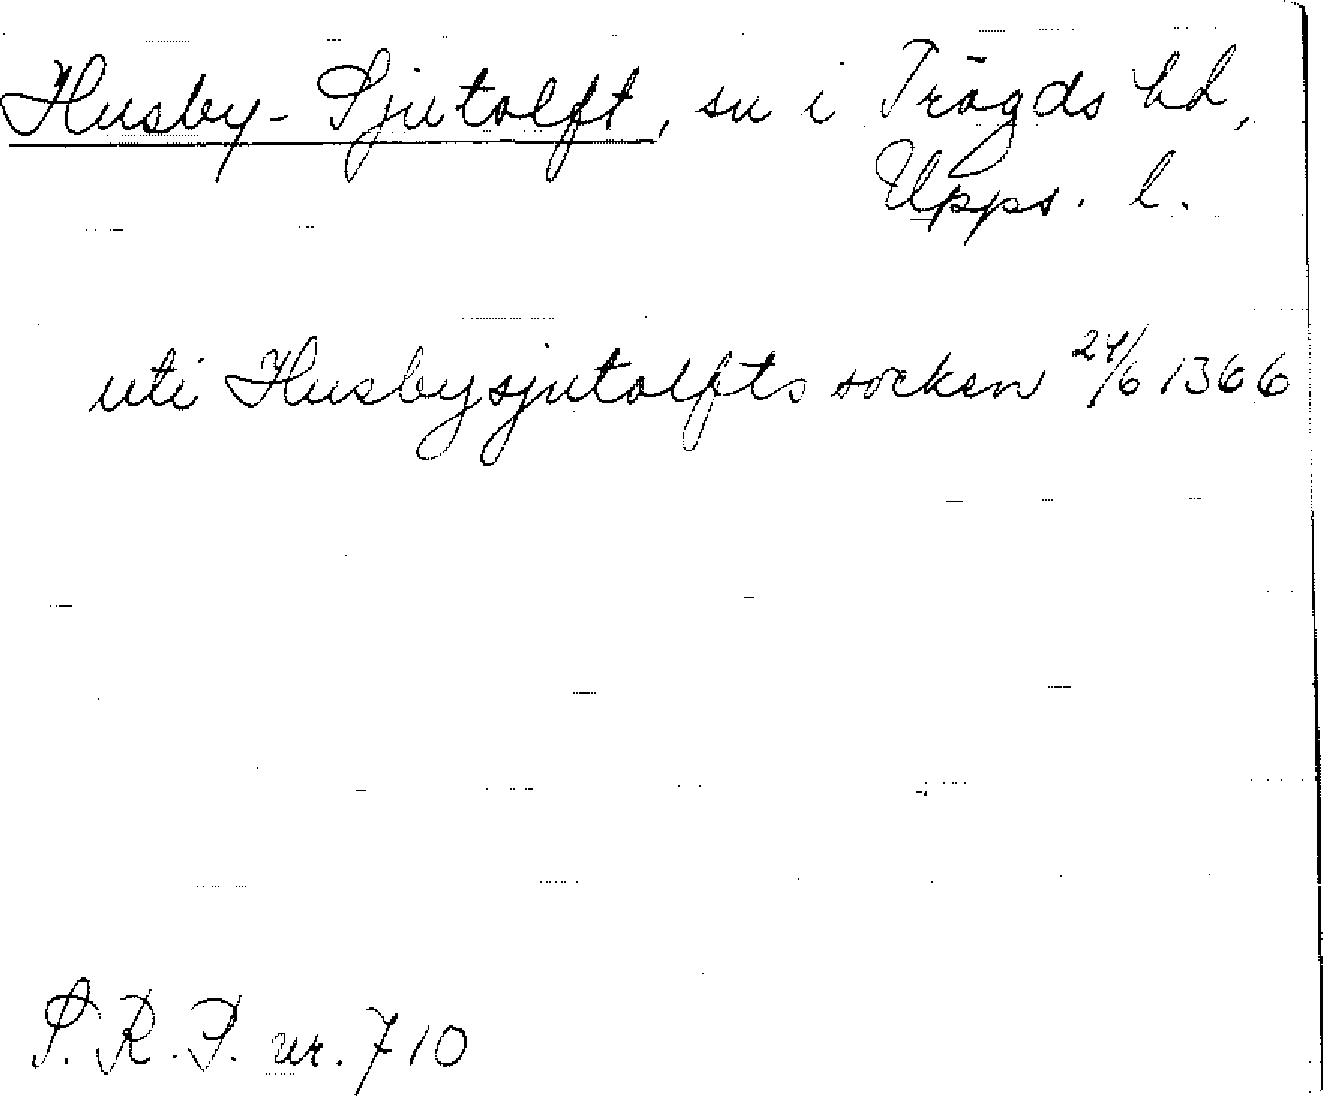 Husby-Sjutolft, sn i Trögds hd,
Upps. l.
uti Husbysjutolfts socken 24/6 1366
S.R.P. nr. 710